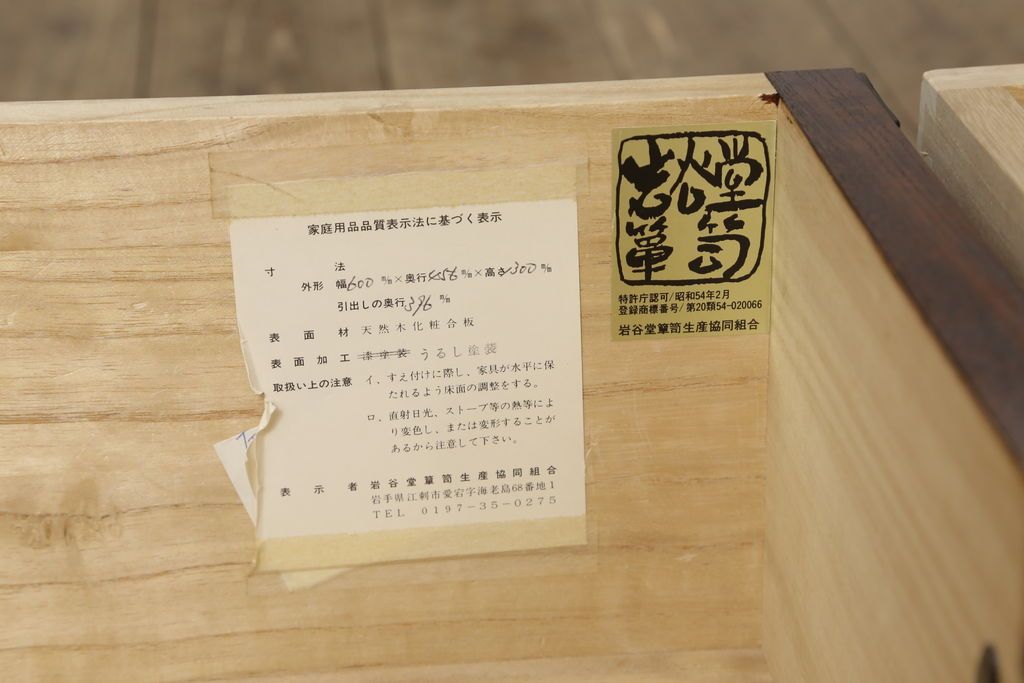 家庭用品品質表示法に基づく表示
寸法
外形 幅600 m/m×奥行456 m/m×高さ1300 m/m
引出しの奥行396 m/m
表面材 天然木化粧合板
表面加工 漆塗装 うるし塗装
取扱い上の注意 イ、すえ付けに際し、家具が水平に保
たれるよう床面の調整をする。
ロ、直射日光、ストーブ等の熱等によ
り変色し、または変形することが
あるから注意して下さい。
表示者 岩谷堂簞笥生産協同組合
岩手県江刺市愛宕字海老島68番地1
TEL 0197-35-0275
岩谷堂
簞笥
特許庁認可/昭和54年2月
登録商標番号/第20類54-020066
岩谷堂簞笥生産協同組合